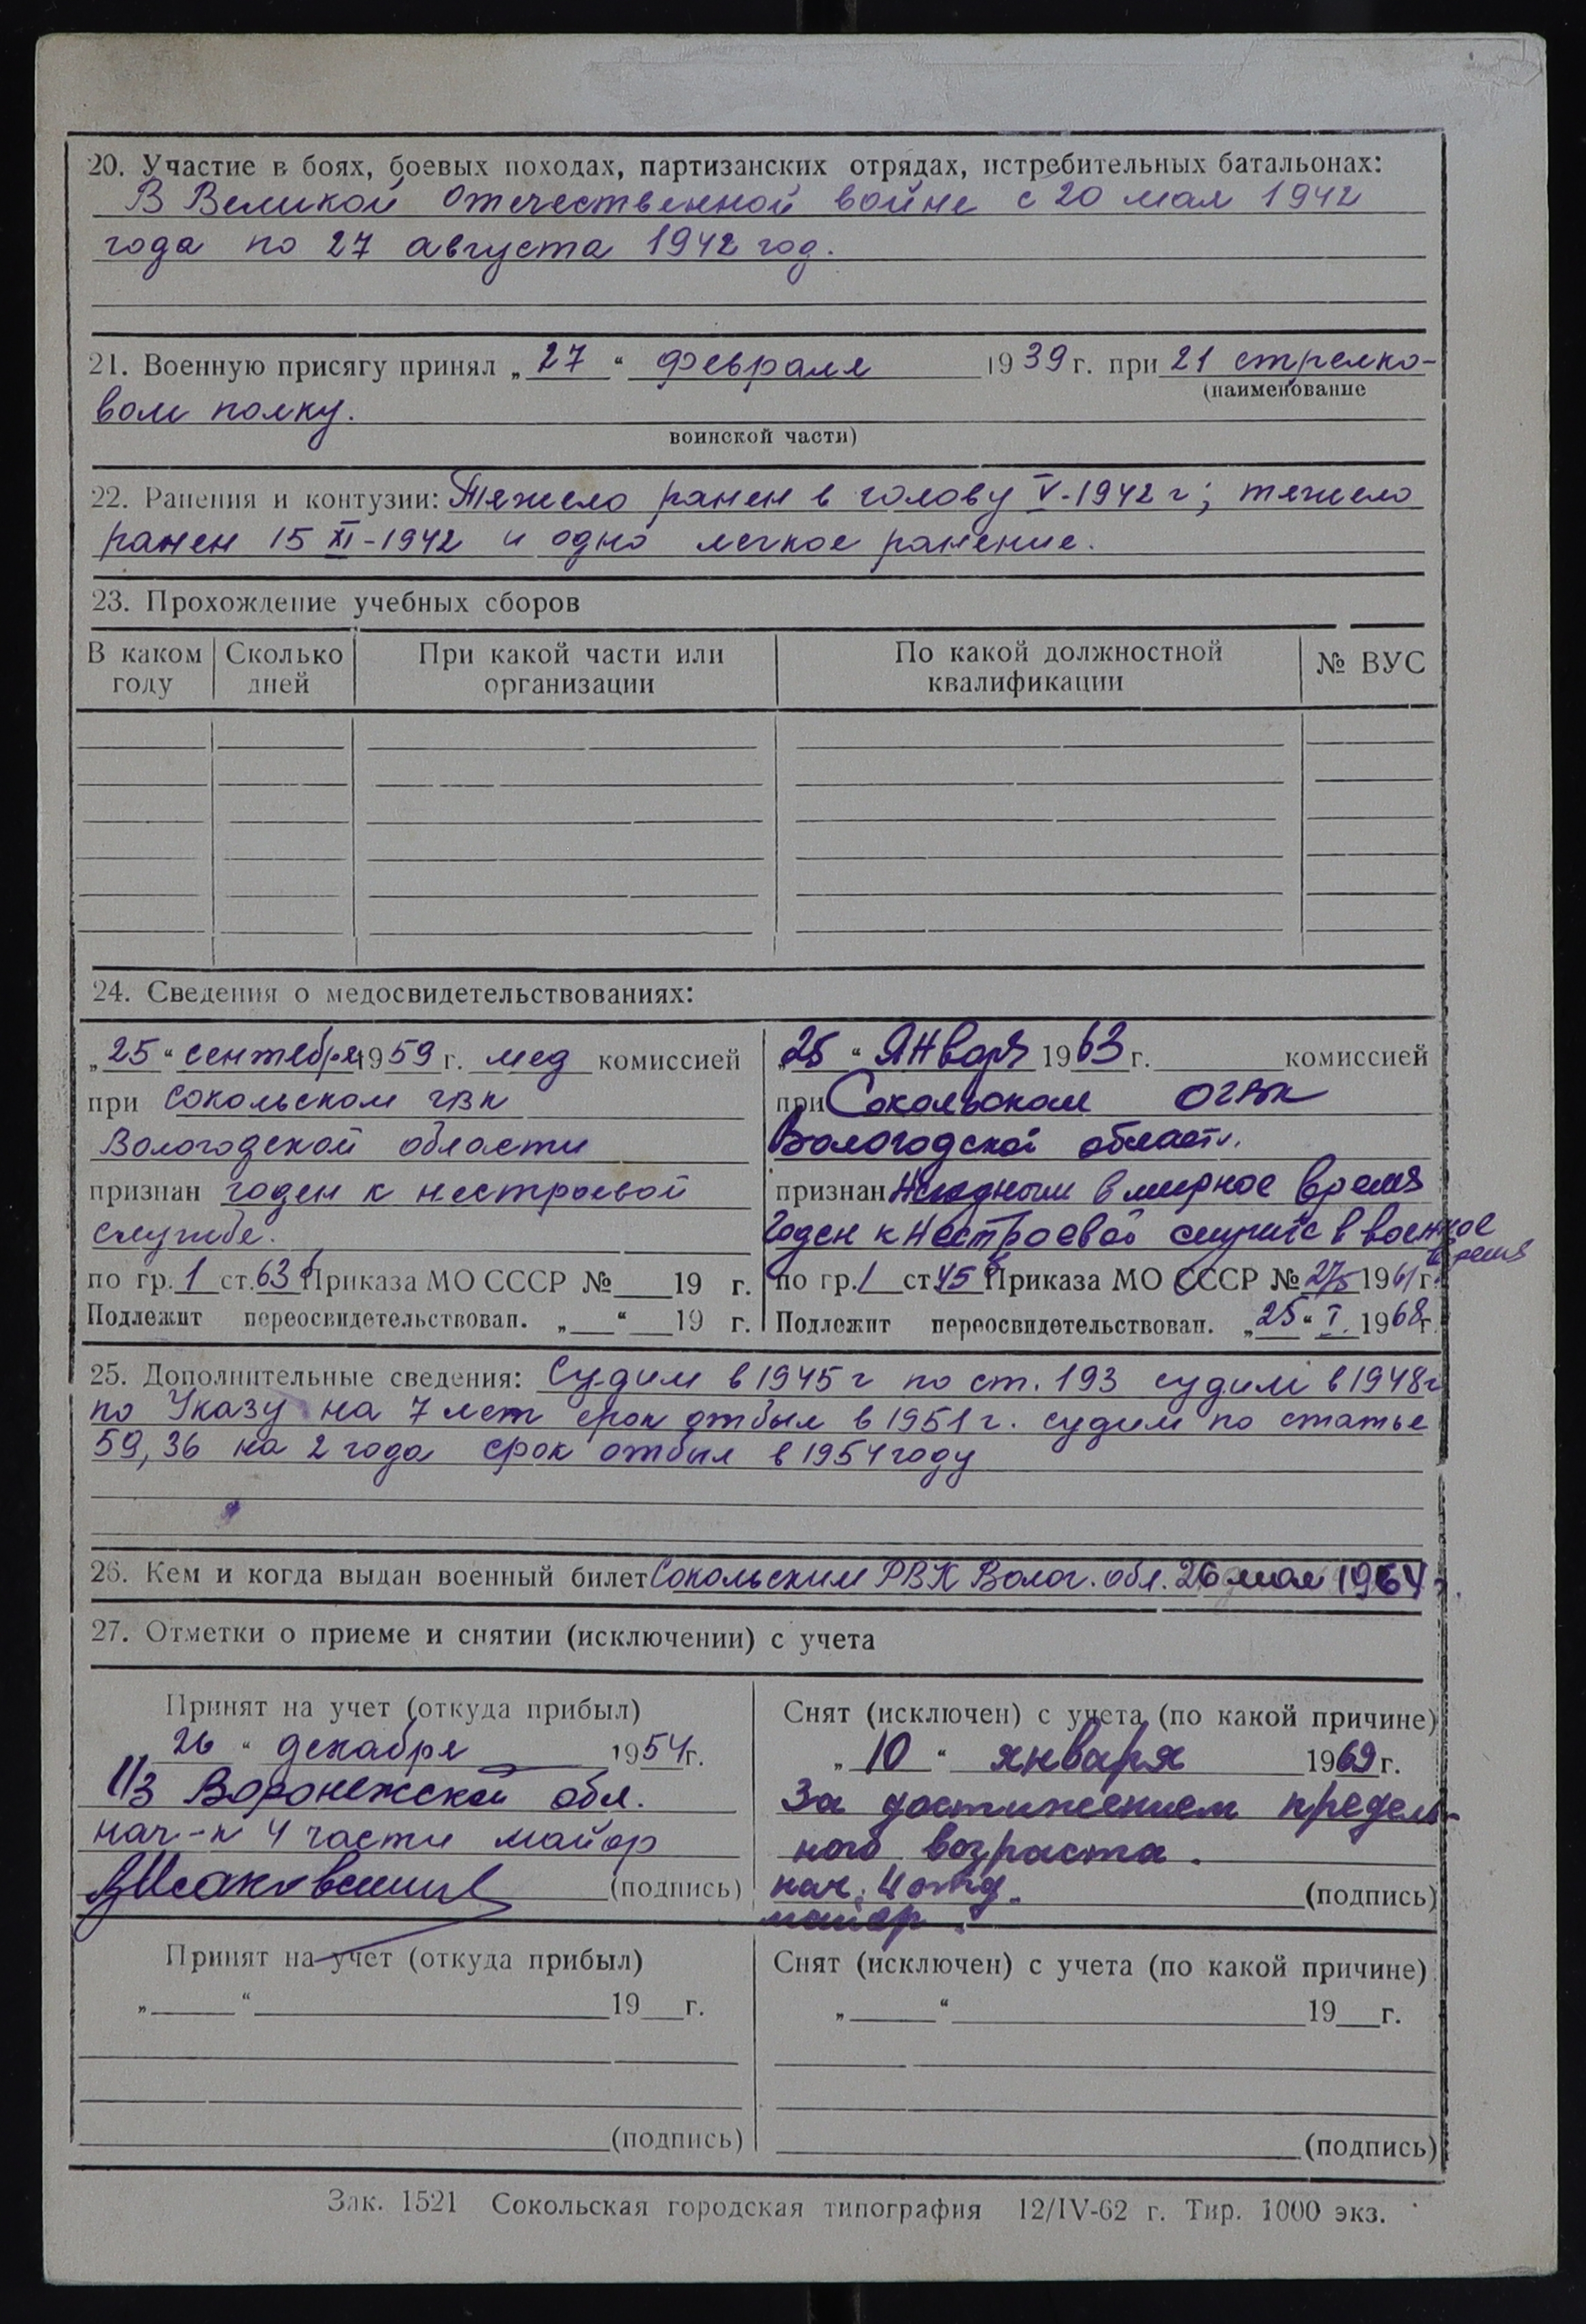 20. Участие в боях, боевых походах, партизанских отрядах, истребительных батальонах:
В Великой Отечественной войне с 20 мая 1942
года по 27 августа 1942 год.
21. Военную присягу принял „27“ февраля 1939 г. при 21 стрелко-
(наименование
вом полку.
воинской части)
22. Ранения и контузии: Тяжело ранен в голову V-1942 г; тяжело
ранен 15 XI-1942 и одно легкое ранение.
23. Прохождение учебных сборов
В каком году | Сколько дней | При какой части или организации | По какой должностной квалификации | № ВУС
24. Сведения о медосвидетельствованиях:
„25“ сентября 1959 г. мед комиссией
при Сокольском гвк
Вологодской области
признан годен к нестроевой
службе.
по гр. 1 ст. 63 б Приказа МО СССР № 19 г.
Подлежит переосвидетельствован. „ “ 19 г.
„25“ Января 1963 г. комиссией
при Сокольском ОГВК
Вологодской области.
признан Негодным в мирное время
Годен к нестроевой службе в военное
время
по гр. 1 ст 45 Приказа МО СССР № 275 1961 г.
Подлежит переосвидетельствован. „25“ I. 1968 г.
25. Дополнительные сведения: Судим в 1945 г по ст. 193 судим в 1948 г
по Указу на 7 лет срок отбыл в 1951 г. судим по статье
59,36 на 2 года срок отбыл в 1954 году
26. Кем и когда выдан военный билет Сокольским РВК Волог. обл. 26 мая 1964 г.
27. Отметки о приеме и снятии (исключении) с учета
Принят на учет (откуда прибыл)
26 “ декабря 1954 г.
из Воронежской обл.
нач-к 4 части майор
(подпись)
Снят (исключен) с учета (по какой причине)
„10“ января 1969 г.
За достижением предель-
ного возраста.
нач. 4 отд. (подпись)
майор.
Принят на учет (откуда прибыл)
„ “ 19 г.
(подпись)
Снят (исключен) с учета (по какой причине)
„ “ 19 г.
(подпись)
Зак. 1521 Сокольская городская типография 12/IV-62 г. Тир. 1000 экз.